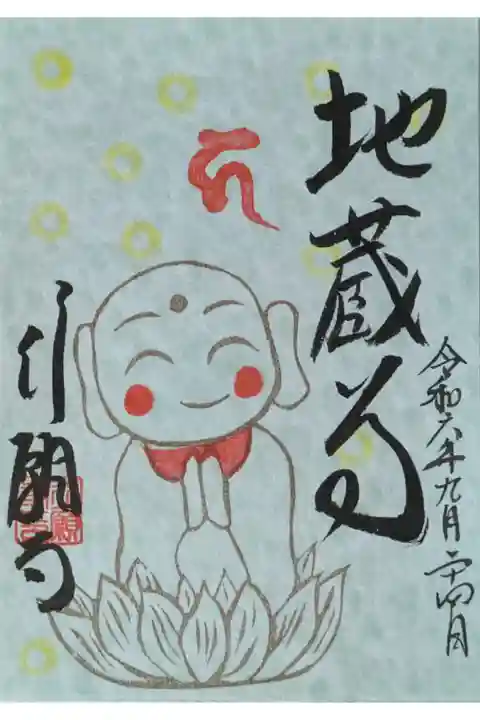 令和六年九月二十四日
地蔵尊
行願寺